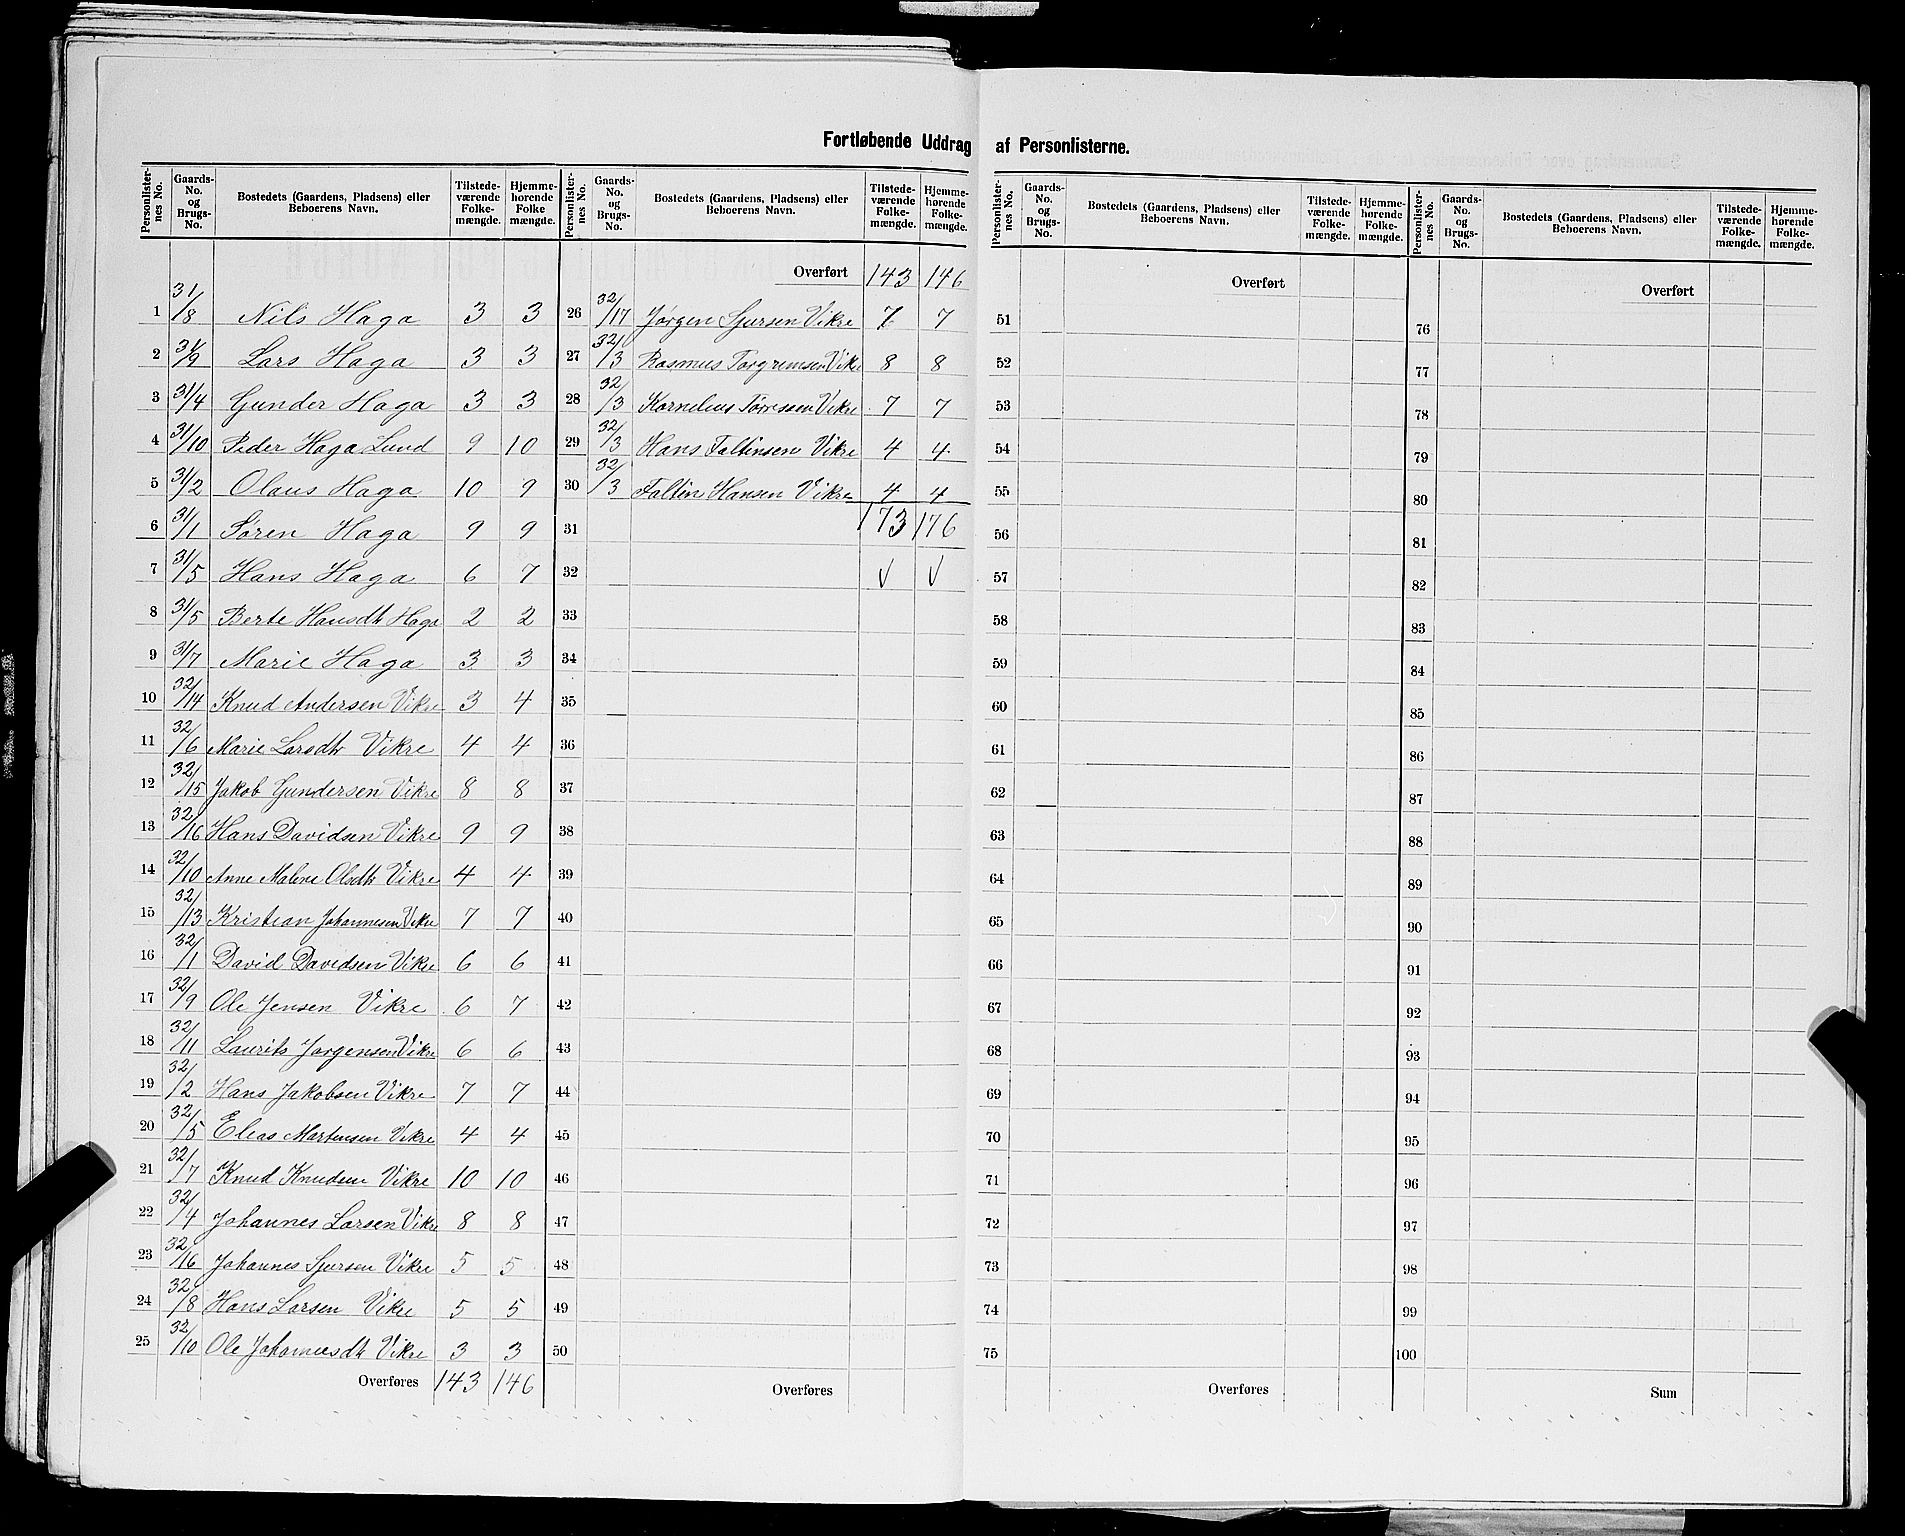 Fortløbende Uddrag af Personlisterne.
Personlisternes No. | Gaards-No. og Brugs-No. | Bostedets (Gaardens, Pladsens) eller Beboerens Navn. | Tilstedeværende Folkemængde. | Hjemmehørende Folkemængde.
1 31/8 Nils Haga 3 3
2 31/9 Lars Haga 3 3
3 31/4 Gunder Haga 3 3
4 31/10 Peder Haga Lund 9 10
5 31/2 Olaus Haga 10 9
6 31/1 Søren Haga 9 9
7 31/5 Hans Haga 6 7
8 31/5 Berte Hansdtr Haga 2 2
9 31/7 Marie Haga 3 3
10 32/14 Knud Andersen Vikre 3 4
11 32/6 Marie Larsdtr Vikre 4 4
12 32/15 Jakob Gundersen Vikre 8 8
13 32/16 Hans Davidsen Vikre 9 9
14 32/10 Anne Malene Olsdtr Vikre 4 4
15 32/13 Kristian Johannesen Vikre 7 7
16 32/1 David Davidsen Vikre 6 6
17 32/9 Ole Jensen Vikre 6 7
18 32/11 Laurits Jørgensen Vikre 6 6
19 32/2 Hans Jakobsen Vikre 7 7
20 32/5 Elias Martensen Vikre 4 4
21 32/7 Knud Knudsen Vikre 10 10
22 32/4 Johannes Larsen Vikre 8 8
23 32/16 Johannes Sjursen Vikre 5 5
24 32/8 Hans Larsen Vikre 5 5
25 32/10 Ole Johannesdtr Vikre 3 3
Overføres 143 146
Personlisternes No. | Gaards-No. og Brugs-No. | Bostedets (Gaardens, Pladsens) eller Beboerens Navn. | Tilstedeværende Folkemængde. | Hjemmehørende Folkemængde.
Overført 143 146
26 32/17 Jørgen Sjursen Vikre 7 7
27 32/3 Rasmus Torgrimsen Vikre 8 8
28 32/3 Kornelius Tørressen Vikre 7 7
29 32/3 Hans Faltinsen Vikre 4 4
30 32/3 Faltin Hansen Vikre 4 4
31 173 176
32 √ √
33
34
35
36
37
38
39
40
41
42
43
44
45
46
47
48
49
50
Overføres
Personlisternes No. | Gaards-No. og Brugs-No. | Bostedets (Gaardens, Pladsens) eller Beboerens Navn. | Tilstedeværende Folkemængde. | Hjemmehørende Folkemængde.
Overført
51
52
53
54
55
56
57
58
59
60
61
62
63
64
65
66
67
68
69
70
71
72
73
74
75
Overføres
Personlisternes No. | Gaards-No. og Brugs-No. | Bostedets (Gaardens, Pladsens) eller Beboerens Navn. | Tilstedeværende Folkemængde. | Hjemmehørende Folkemængde.
Overført
76
77
78
79
80
81
82
83
84
85
86
87
88
89
90
91
92
93
94
95
96
97
98
99
100
Sum